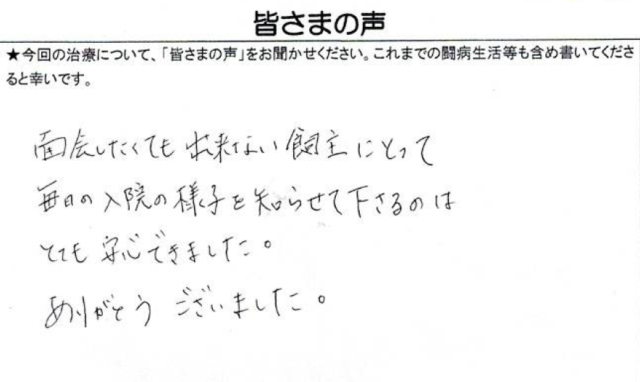 皆さまの声
★今回の治療について、「皆さまの声」をお聞かせください。これまでの闘病生活等も含め書いてくださ
ると幸いです。
面会したくても出来ない飼主にとって
毎日の入院の様子を知らせて下さるのは
とても安心できました。
ありがとうございました。